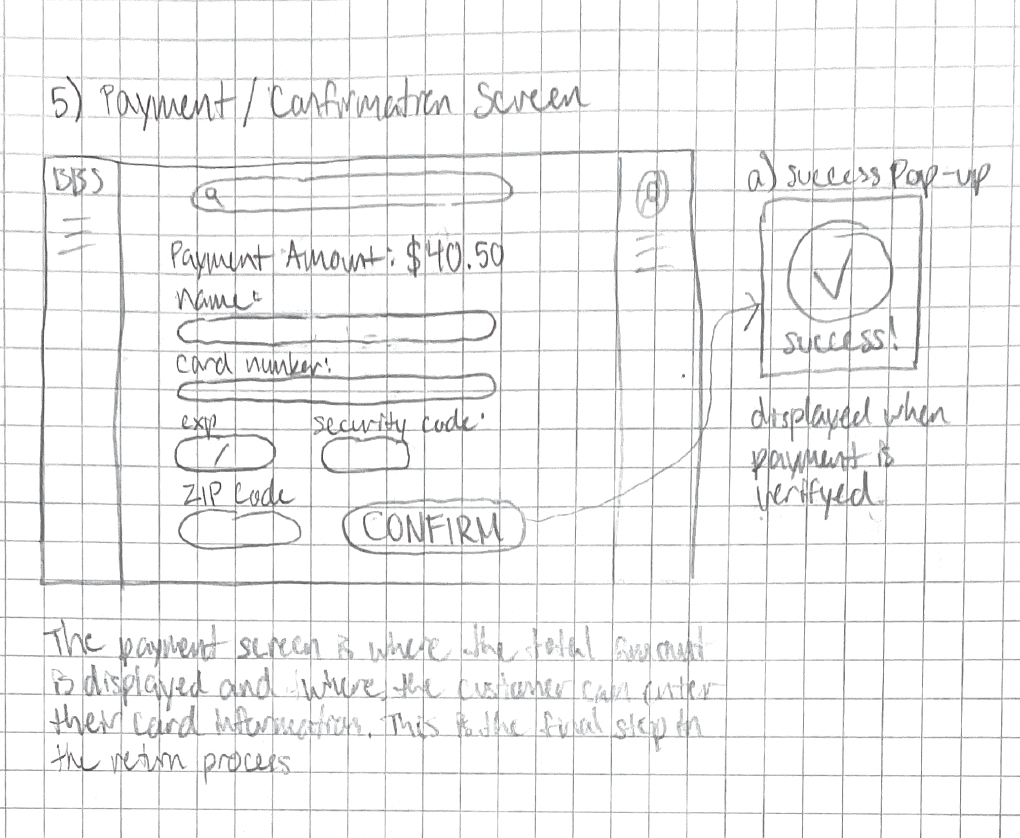 5) Payment / Confirmation Screen
BBS
Payment Amount: $40.50
name:
card number:
exp
security code:
/
ZIP Code
CONFIRM
a) success Pop-up
success!
displayed when
payment is
verifyed
The payment screen is where the total amount
is displayed and where the customer can enter
their card information. This is the final step in
the return process